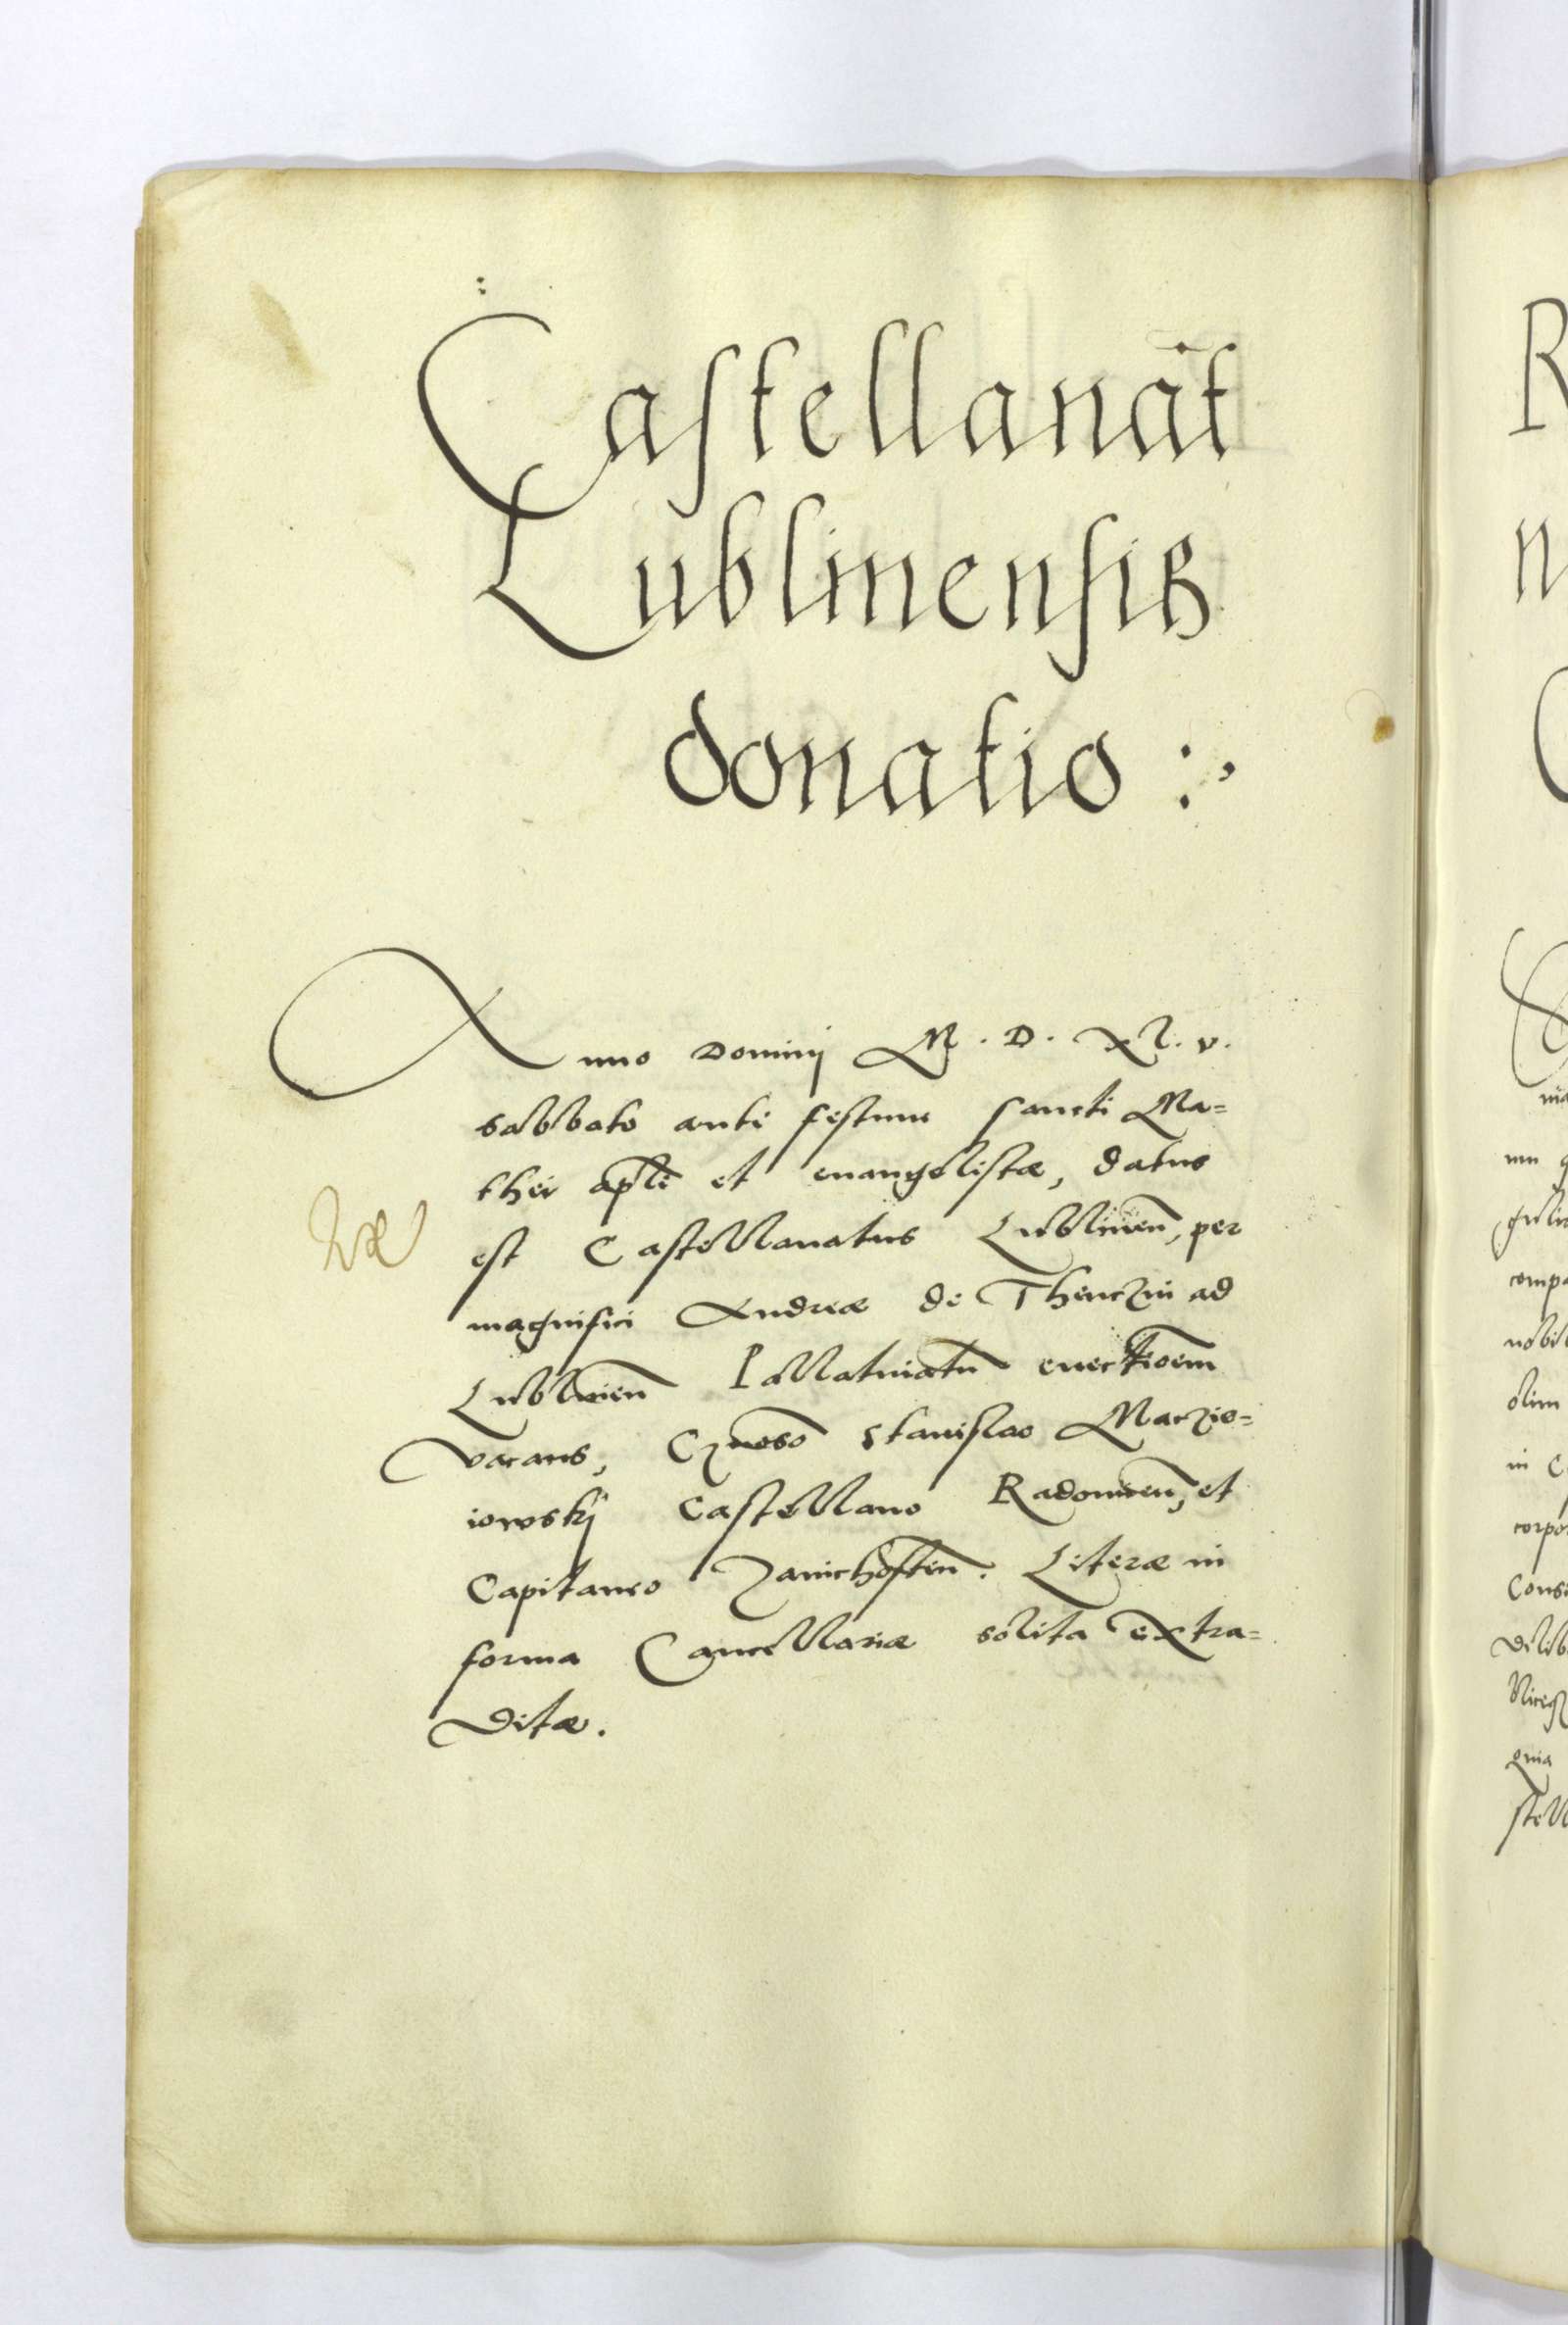 Castellanat̄
Lublinensis
donatio :,
Anno Dominij M. D. XL. v.
sabbato ante festum sancti Ma=
thei apl̄i et euangelistæ, datus
est Castellanatus Lublineñ, per
magnifici Andreæ de Thenczin ad
Lublineñ Pallatinatū euectioēm
vacans, Stanislao Maczie=
iowskj Castellano Radomieñ, et
Capitaneo Zawichosteñ. Literæ in
forma Cancellariæ solita extra=
ditæ.